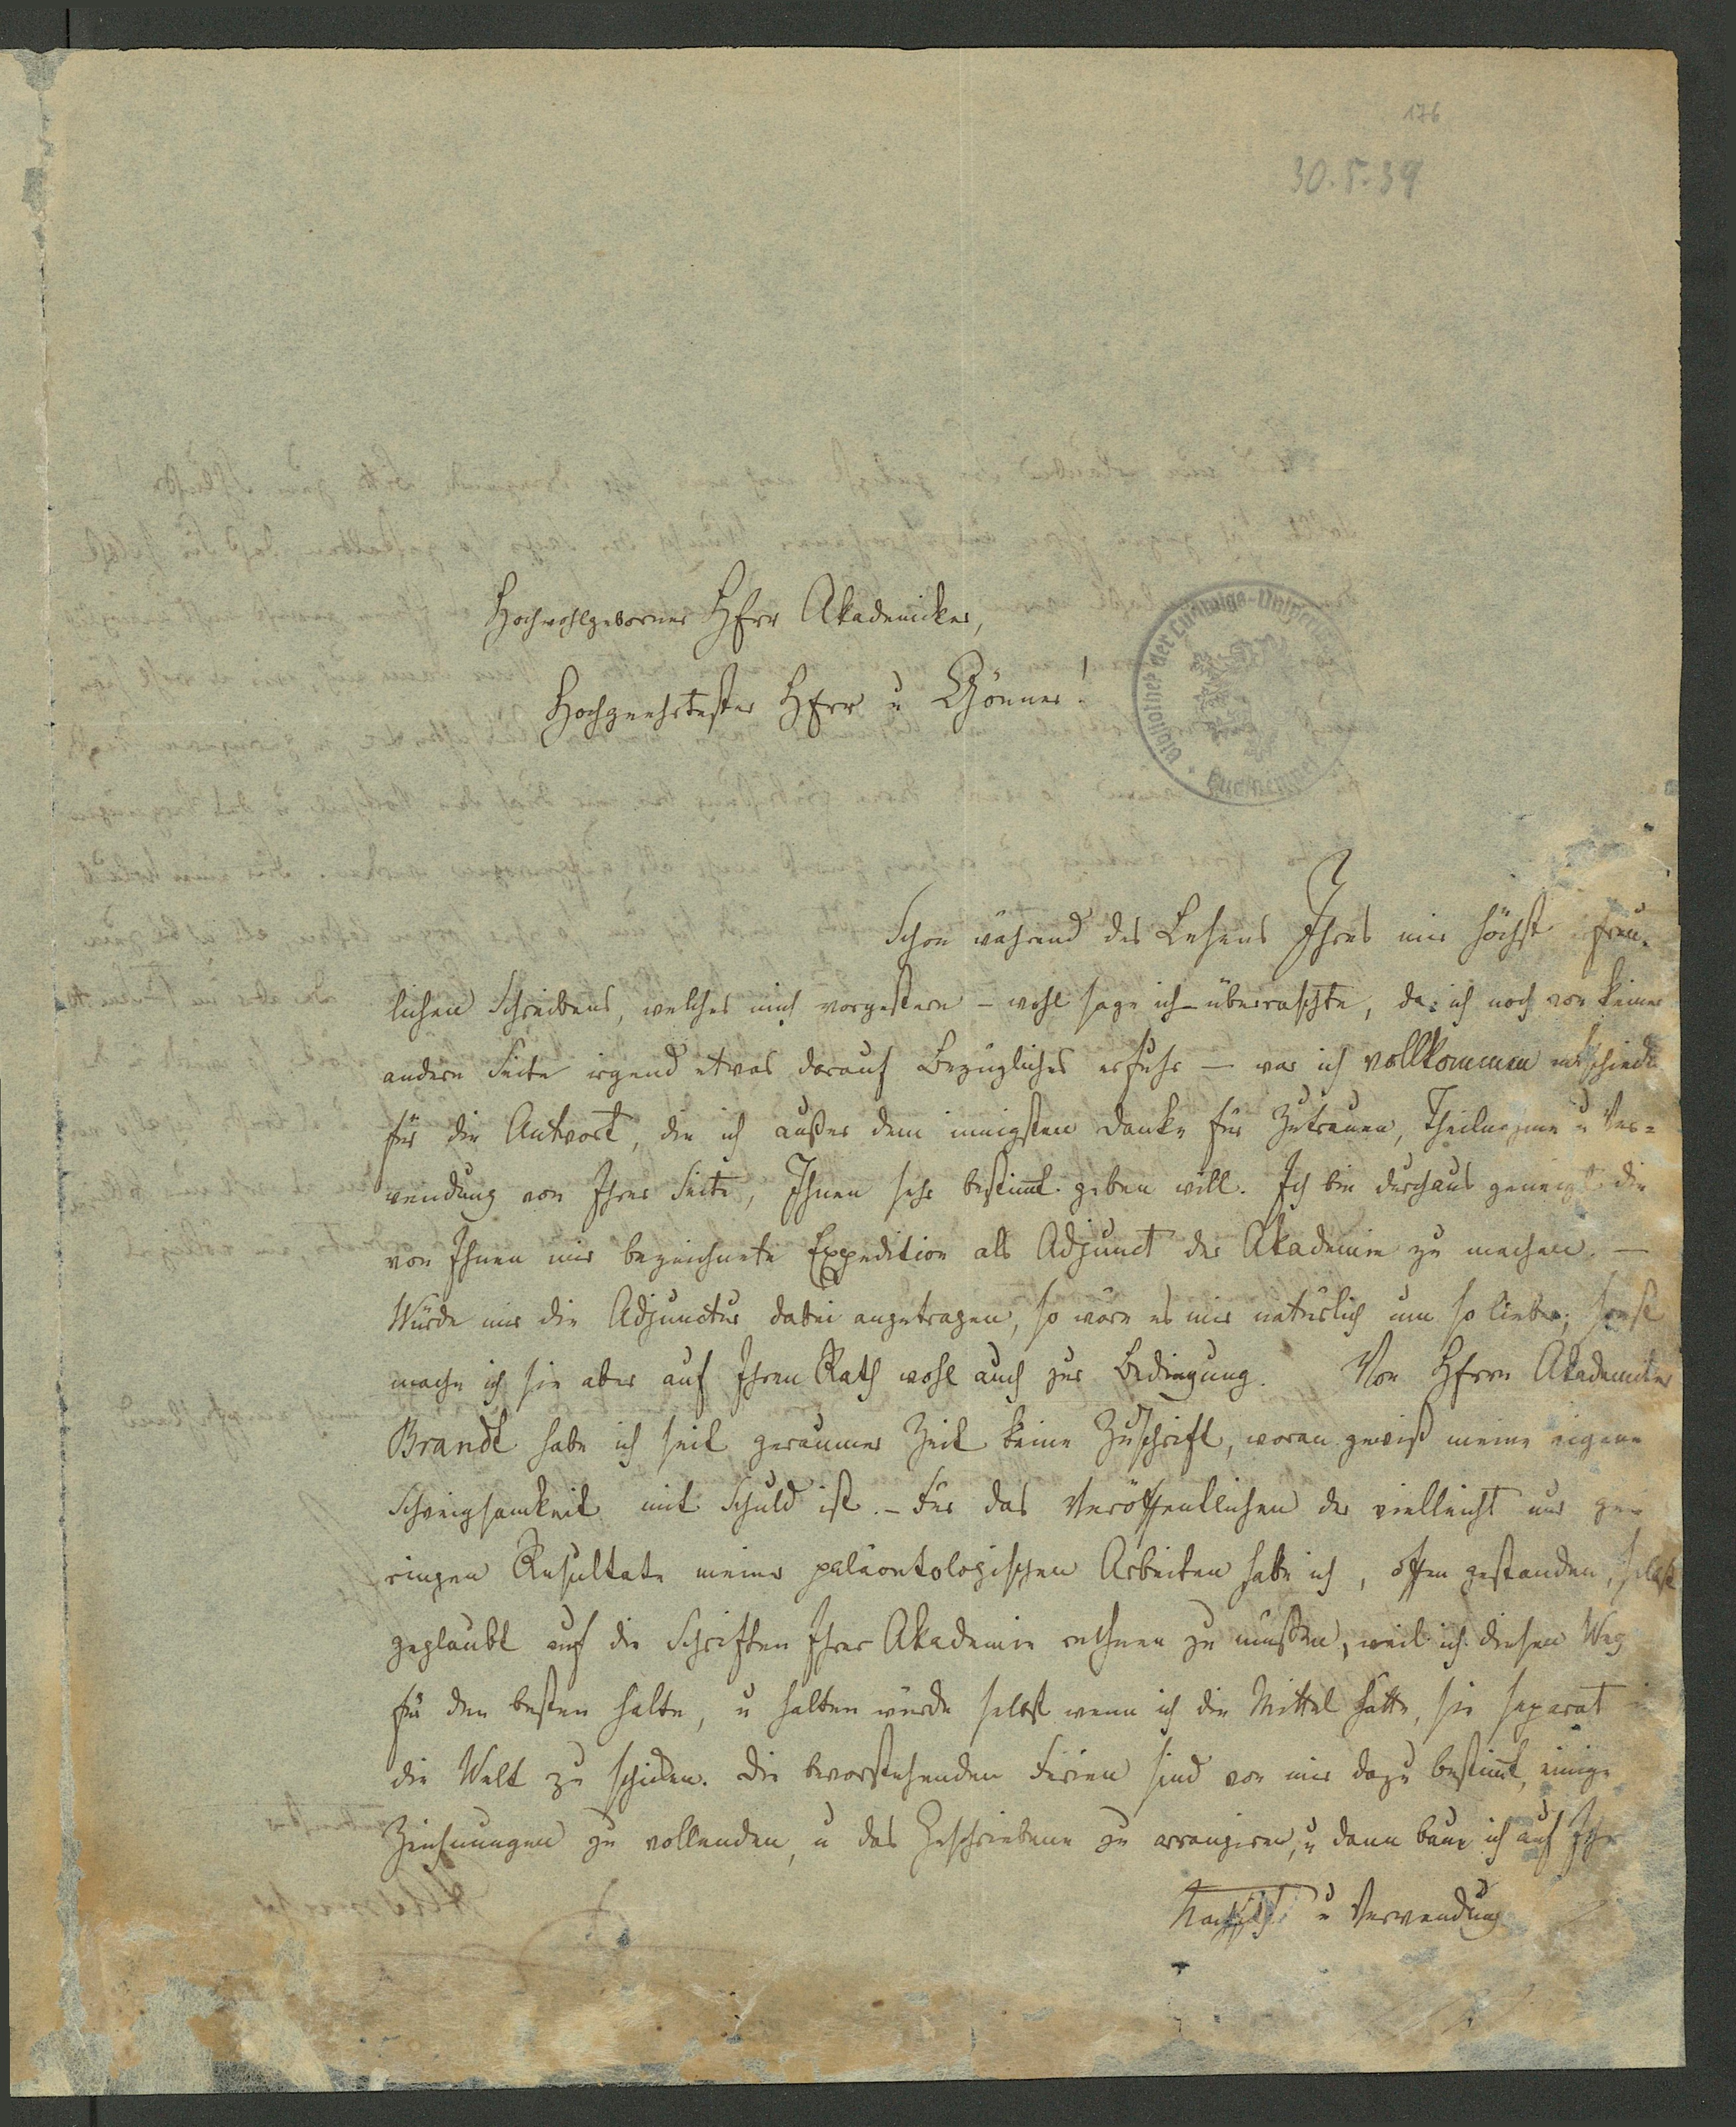 176
30.5.39
Hochwohlgeborner Herr Akademiker,
Hochgeehrtester Herr u Gönner!
Bibliothek der Ludwigs-Universität
Schon während des Lesens Ihres mir höchst erfreu-
lichen Schreibens, welches mich vorgestern – wohl sage ich – überraschte, da ich noch von keiner
andern Seite irgend etwas darauf Bezügliches erfuhr – war ich vollkommen entschieden
für die Antwort, die ich außer dem innigsten Danke für Zutrauen, Theilnahme u Ver=
wendung von Ihrer Seite, Ihnen sehr bestimt geben will. Ich bin durchaus geneigt die
von Ihnen mir bezeichnete Expedition als Adjunct der Akademie zu machen. –
Würde mir die Adjunctur dabei angetragen, so wäre es mir natürlich um so lieber; sonst
mache ich sie aber auf Ihren Rath wohl auch zur Bedingung. Von Herrn Akademiker
Brandt habe ich seit geraumer Zeit keine Zuschrift, woran gewiß meine eigene
Schweigsamkeit mit Schuld ist. – Für das Veröffentlichen der vielleicht nur ge-
ringen Resultate meiner paläontologischen Arbeiten habe ich, offen gestanden, selbst
geglaubt auf die Schriften Ihrer Akademie rechnen zu müßen, weil ich diesen Weg
für den besten halte, u halten würde selbst wenn ich die Mittel hätte, sie separat in
die Welt zu schicken. Die bevorstehenden Ferien sind von mir dazu bestimt, einige
Zeichnungen zu vollenden, u das Geschriebene zu arrangiren, u dann baue ich auf Ihre
u Verwendung